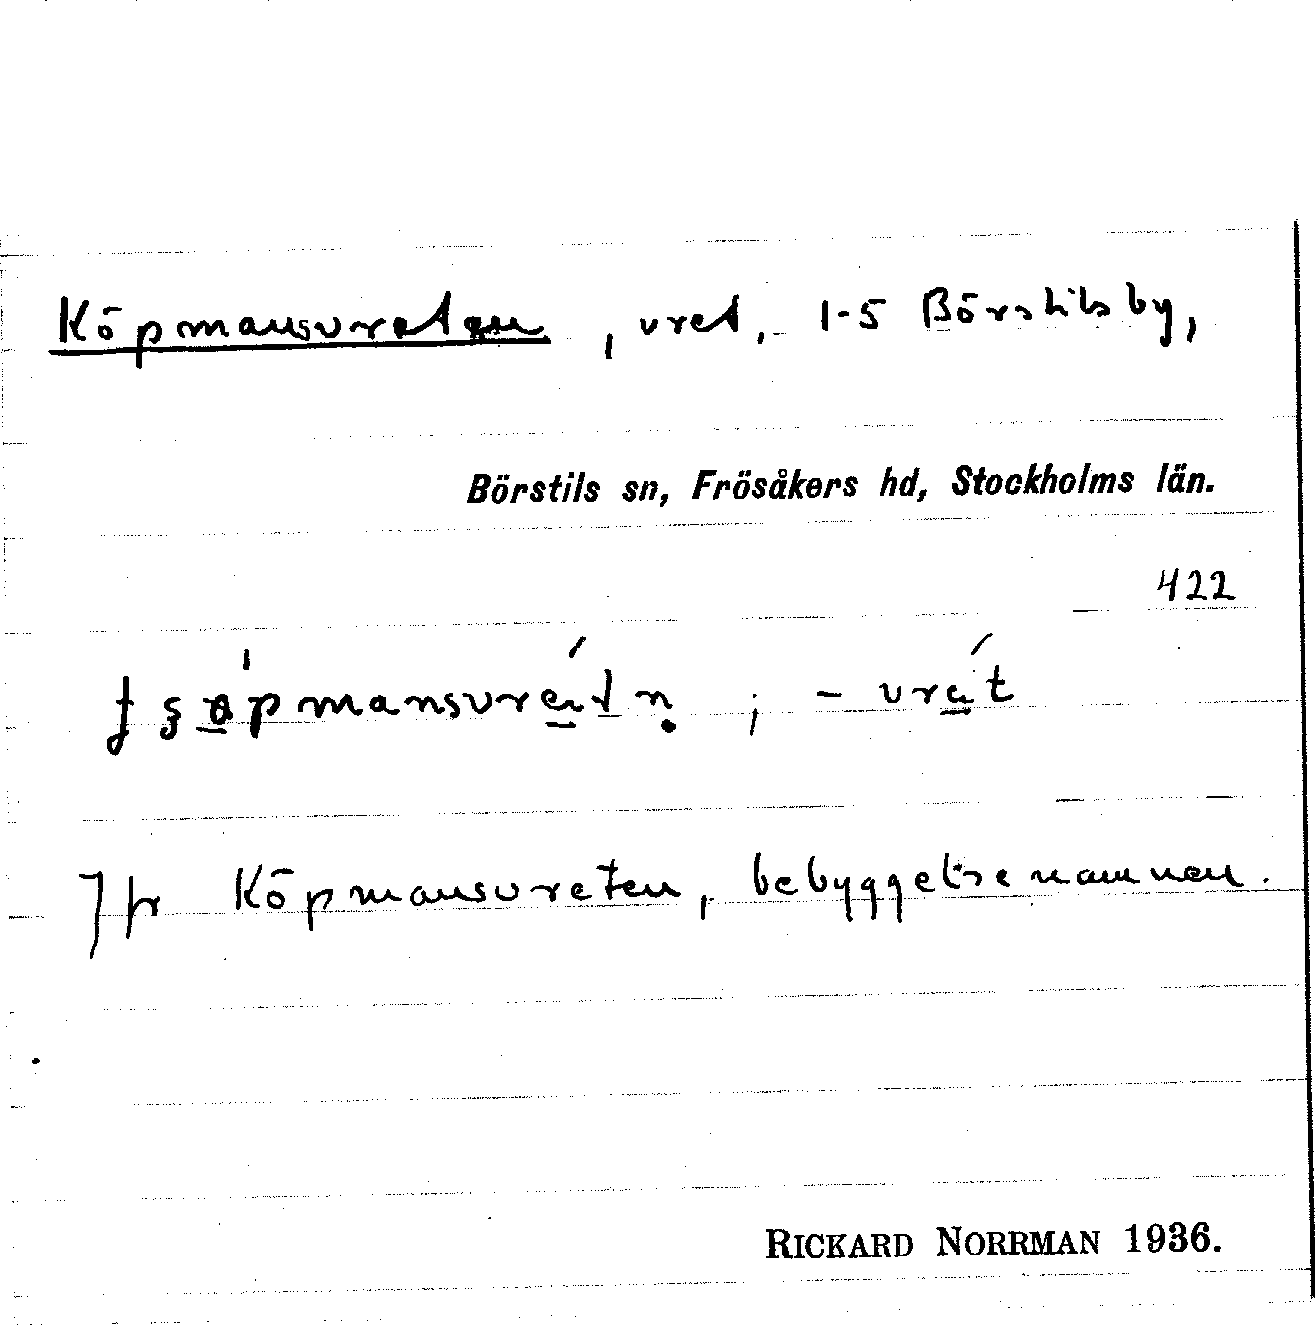 Köpmansvreten, vret, 1-5 Börstils by,
Börstils sn, Frösåkers hd, Stockholms län.
422
; - vrét
Jfr Köpmansvreten, bebyggelsenamnen.
RICKARD NORRMAN 1936.